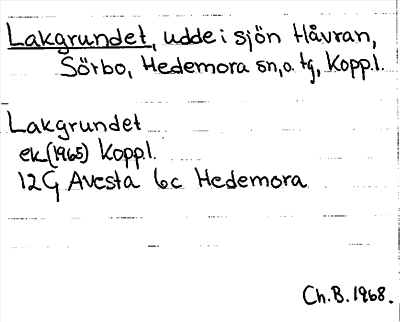 Lakgrundet, udde i sjön Håvran,
Sörbo, Hedemora sn, o. tg, Koppl.
Lakgrundet
ek (1965) Koppl.
12G Avesta 6c Hedemora
Ch.B. 1968.